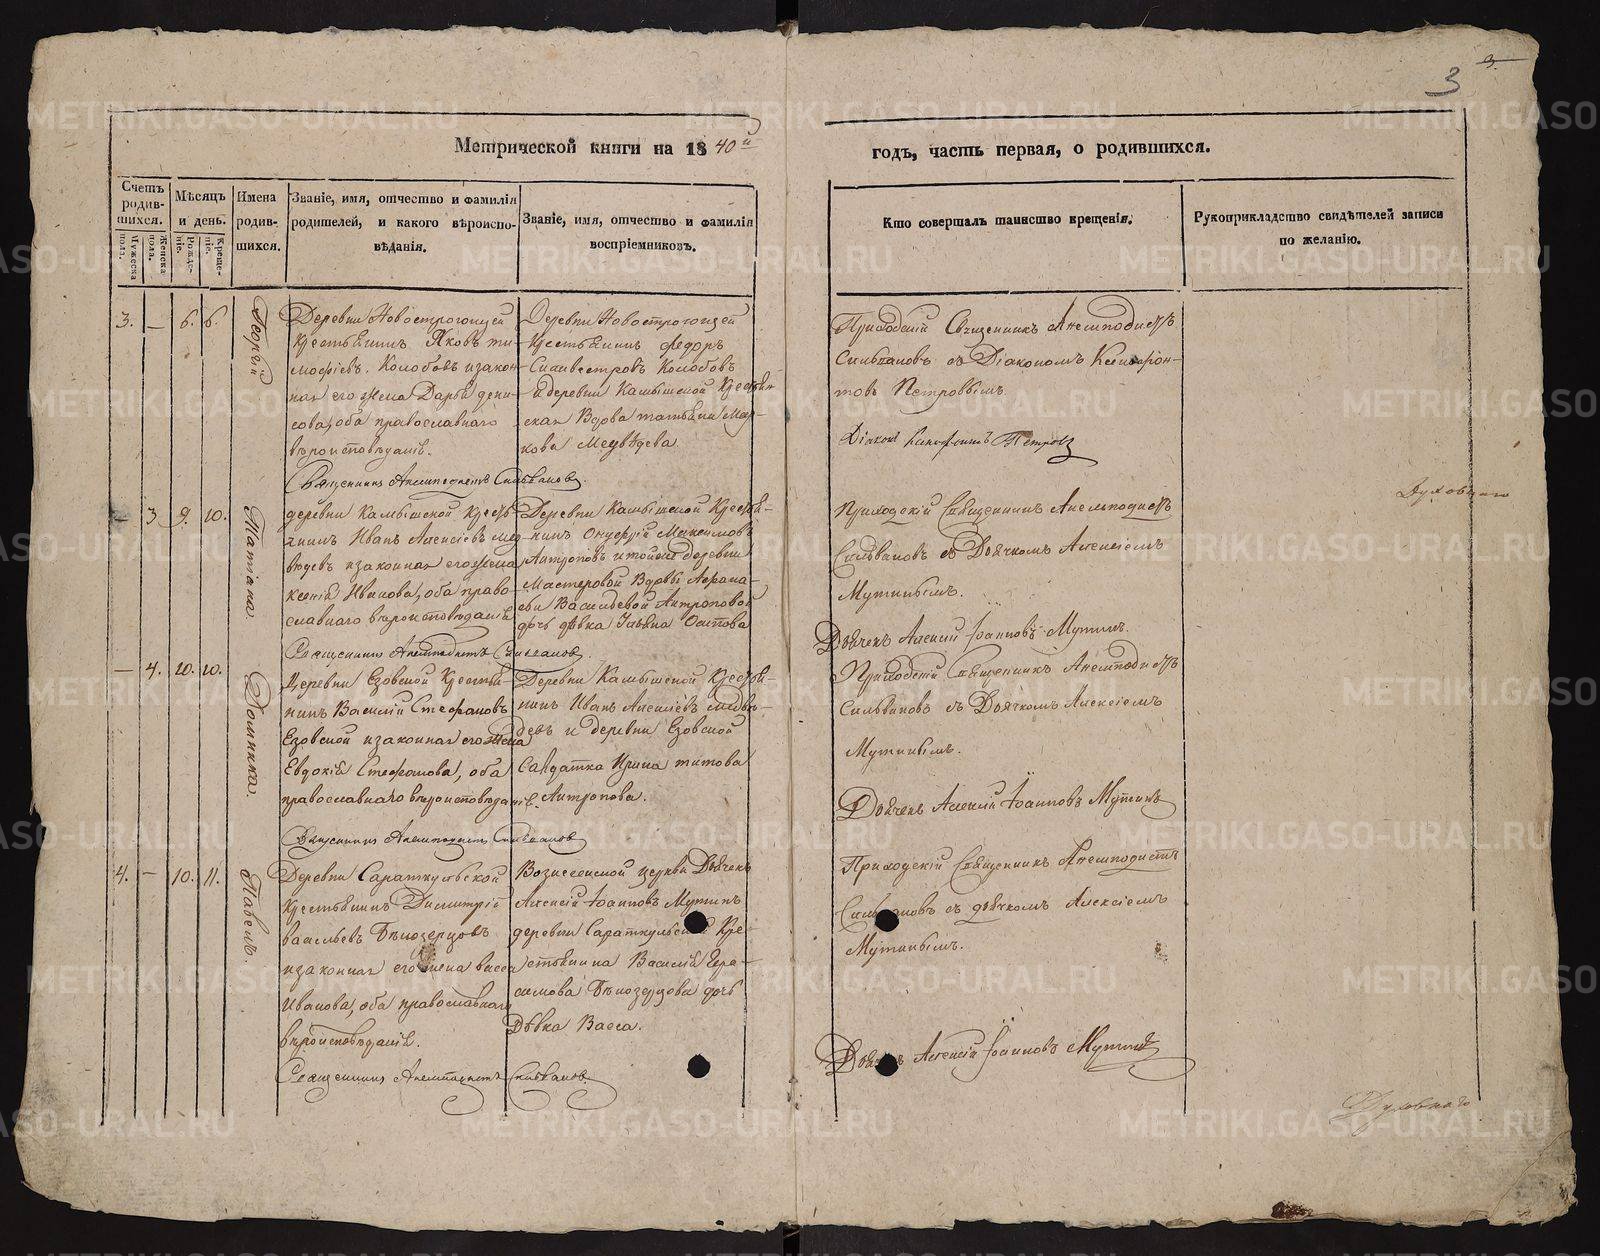 3.
3
Метрической книги на 1840й
годъ, часть первая, о родившихся.
Счетъ родившихся.
Мужеска пола.
Женска пола.
Мѣсяцъ и день.
Рожденіе.
Крещеніе.
Имена родившихся.
Званіе, имя, отчество и фамилія
родителей, и какого вѣроиспо-
вѣданія.
Званіе, имя, отчество и фамилія
воспріемниковъ.
Кто совершалъ таинство крещенія.
Рукоприкладство свидѣтелей записи
по желанію.
3. — 6. 6.
Георгій
Деревни
крестьянинъ Яковъ Ти-
мофіевъ Колобовъ и закон-
ная его жена Дарья Дени-
сова, оба православнаго
вѣроисповѣданія.
Деревни
крестьянинъ Федоръ
Силивестровъ Колобовъ
и деревни Камышной крестьян-
ская вдова Татьяна Мар-
кова Медвѣдева.
Приходскій Священникъ Анемподистъ
Сильвановъ съ Діакономъ Ксенофон-
томъ Петровымъ.
Діаконъ Ксенофонтъ Петровъ
Священникъ Анемподистъ Сильвановъ.
— 3. 9. 10.
Татіана.
деревни Камышной кресть-
янинъ Иванъ Алексіевъ Мед-
вѣдевъ и законная его жена
Ксенія Иванова, оба право-
славнаго вѣроисповѣданія
Деревни Камышной кресть-
янинъ Онуфрій Максимовъ
Антроповъ и той же деревни
Мастеровой вдовы Афана-
сьи Васильевой Антроповой
дочь дѣвка
Приходскій Священникъ Анемподистъ
Сильвановъ съ Дьячкомъ Алексіемъ
Мутинымъ.
Дьячекъ Алексій Іоанновъ Мутинъ.
Священникъ Анемподистъ Сильвановъ.
— 4. 10. 10.
Домникка.
Деревни Езовской крестья-
нинъ Василій Стефановъ
Езовской и законная его жена
Евдокія Стефанова, оба
православнаго вѣроисповѣданія.
Деревни Камышной крестья-
нинъ Иванъ Алексіевъ Медвѣ-
девъ и деревни Езовской
Салдатка Ирина Титова
Антропова.
Приходскій Священникъ Анемподистъ
Сильвановъ съ Дьячкомъ Алексіемъ
Мутинымъ.
Дьячекъ Алексій Іоанновъ Мутинъ
Священникъ Анемподистъ Сильвановъ
4. — 10. 11.
Павелъ.
Деревни Сараткульской
крестьянинъ Димитрій
Васильевъ Бѣлозерцовъ
и законная его жена Васса
Иванова, оба православнаго
вѣроисповѣданія.
Вознесенской церкви Дьячекъ
Алексій Іоанновъ Мутинъ
деревни Сараткульской кре-
стьянина Василія Гера-
симова Бѣлозерцова дочь
дѣвка Васса.
Приходскій Священникъ Анемподистъ
Сильвановъ съ дьячкомъ Алексіемъ
Мутинымъ.
Дьячекъ Алексій Іоанновъ Мутинъ
Священникъ Анемподистъ Сильвановъ.
Духовнаго
Духовнаго
METRIKI.GASO-URAL.RU